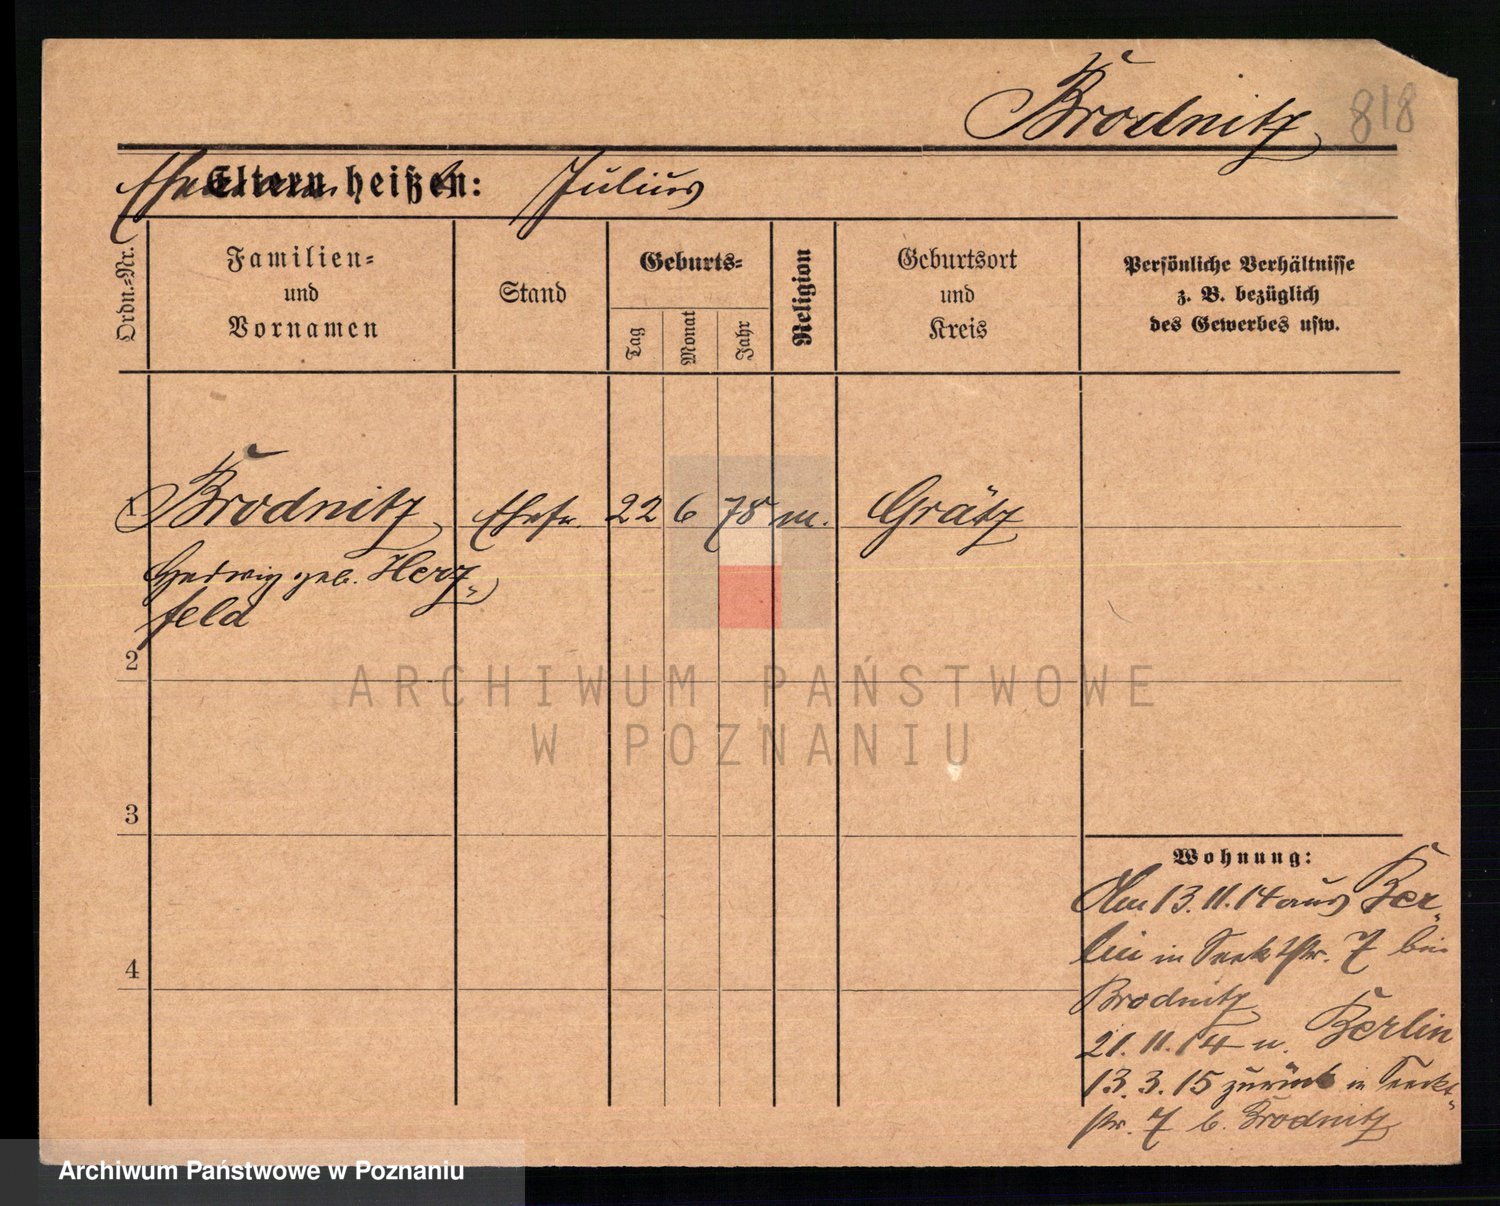 Brodnitz
818
Eltern heißen:
Julius
Ordn.-Nr.
Familien-
und
Vornamen
Stand
Geburts-
Tag
Monat
Jahr
Religion
Geburtsort
und
Kreis
Persönliche Verhältnisse
z. B. bezüglich
des Gewerbes usw.
1 Brodnitz Ehefr. 22 6 78 m. Grätz
Hedwig geb. Herz-
feld
2
3
4
Wohnung:
Am 13.11.14 aus Ber-
lin in Seecktstr. 7 bei
Brodnitz
21.11.14 n. Berlin
13.3.15 zurück in Seeckt-
str. 7 b. Brodnitz
ARCHIWUM PAŃSTWOWE
W POZNANIU
Archiwum Państwowe w Poznaniu